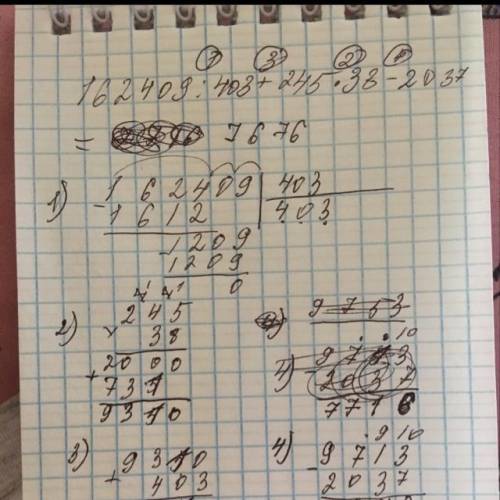 1 3 2 4
162409:403+245·38-2037
= 7676
1)
162409 403
-1612 403
-1209
1209
0
2)
245
× 38
2000
+
9310
9753
10
2037
3)
9310
+ 403
4)
· 9 10
-9713
2037